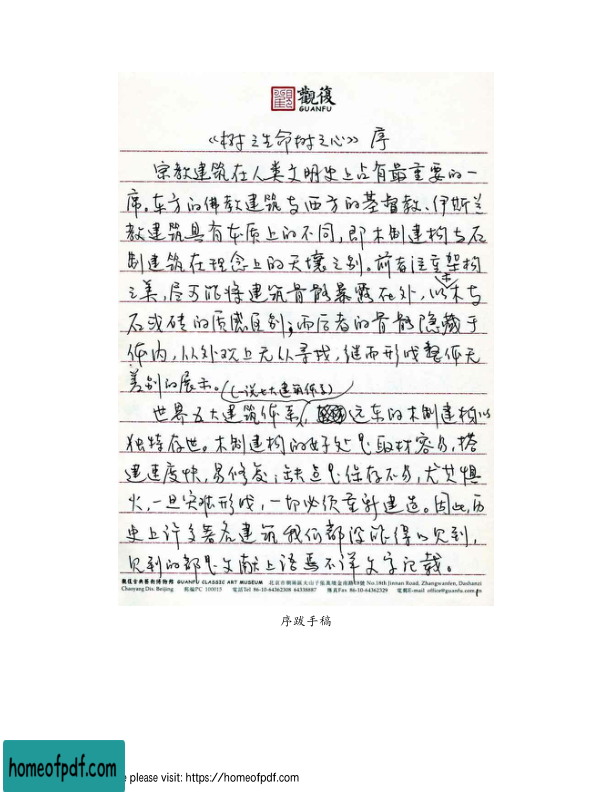 觀復
GUANFU
《树之生命树之心》序
宗教建筑在人类文明史上占有最重要的一
席。东方的佛教建筑与西方的基督教、伊斯兰
教建筑具有本质上的不同，即木制建构与石
制建筑在理念上的天壤之别。前者注重架构
之美，尽可能将建筑骨骼暴露在外，以木与
石或砖的质感区别；而后者的骨骼隐藏于
体内，从外观上无从寻找，继而形成整体无
差别的展示。
(一说七大建筑体系)
世界五大建筑体系，远东的木制建构以
独特存世。木制建构的好处是取材容易，搭
建速度快，易修复；缺点是保存不易，尤其惧
火，一旦灾难形成，一切必须重新建造。因此，历
史上许多著名建筑我们都没能得以见到，
见到的都是文献上语焉不详文字记载。
觀復古典藝術博物館 GUANFU CLASSIC ART MUSEUM 北京市朝陽區大山子張萬墳金南路18號 No.18th Jinnan Road, Zhangwanfen, Dashanzi
Chaoyang Dis. Beijing 郵編PC 100015 電話Tel 86-10-64362308 64338887 傳真Fax 86-10-64362329 電郵E-mail office@guanfu.com.cn
序跋手稿
homeofpdf.com
e please visit: https://homeofpdf.com